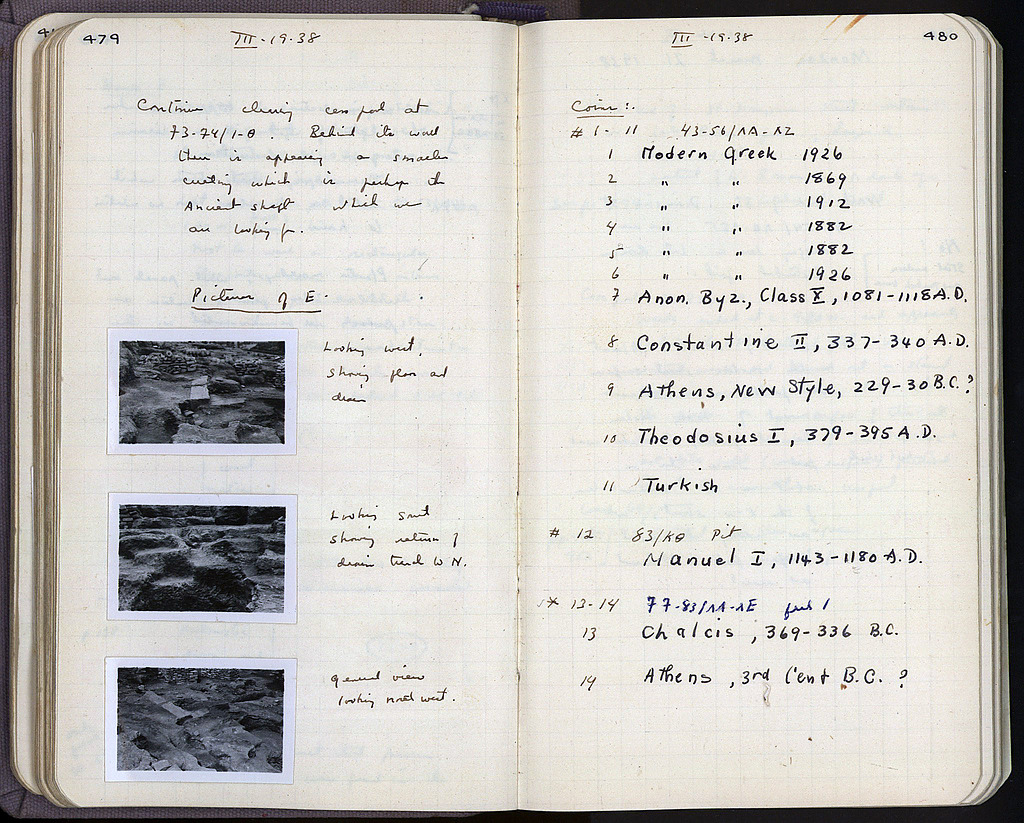 479
III-19-38
Continue clearing cess pool at
73-74/1-θ. Behind its wall
there is appearing a smaller
cutting which is perhaps the
Ancient shaft which we
are looking for.
Pictures of E.
Looking west,
showing floor and
drain
Looking south
showing return of
drain toward W N.
general view
looking north west.
III-19-38
480
Coins:.
# 1-11 43-56/ΛΑ-ΛΖ
1 Modern Greek 1926
2 " " 1869
3 " " 1912
4 " " 1882
5 " " 1882
6 " " 1926
7 Anon. Byz., Class X, 1081-1118 A.D.
8 Constantine II, 337-340 A.D.
9 Athens, New Style, 229-30 B.C.?
10 Theodosius I, 379-395 A.D.
11 Turkish
# 12 83/ΚΘ Pit
Manuel I, 1143-1180 A.D.
* 13-14 77-83/ΛΑ-ΛΕ
13 Chalcis, 369-336 B.C.
14 Athens, 3rd Cent B.C. ?